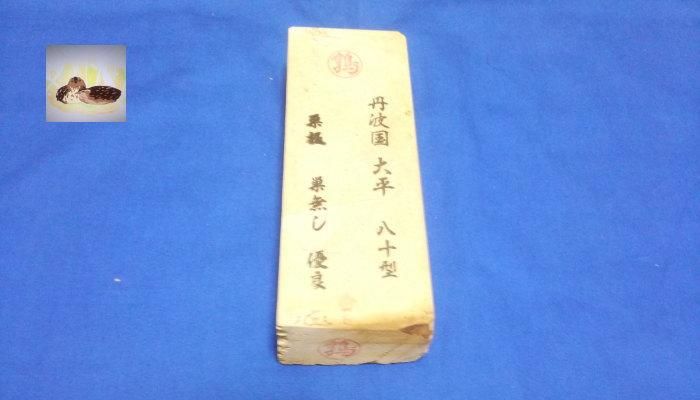 丹波国 大平 八十型
巣板 巣無し 優良